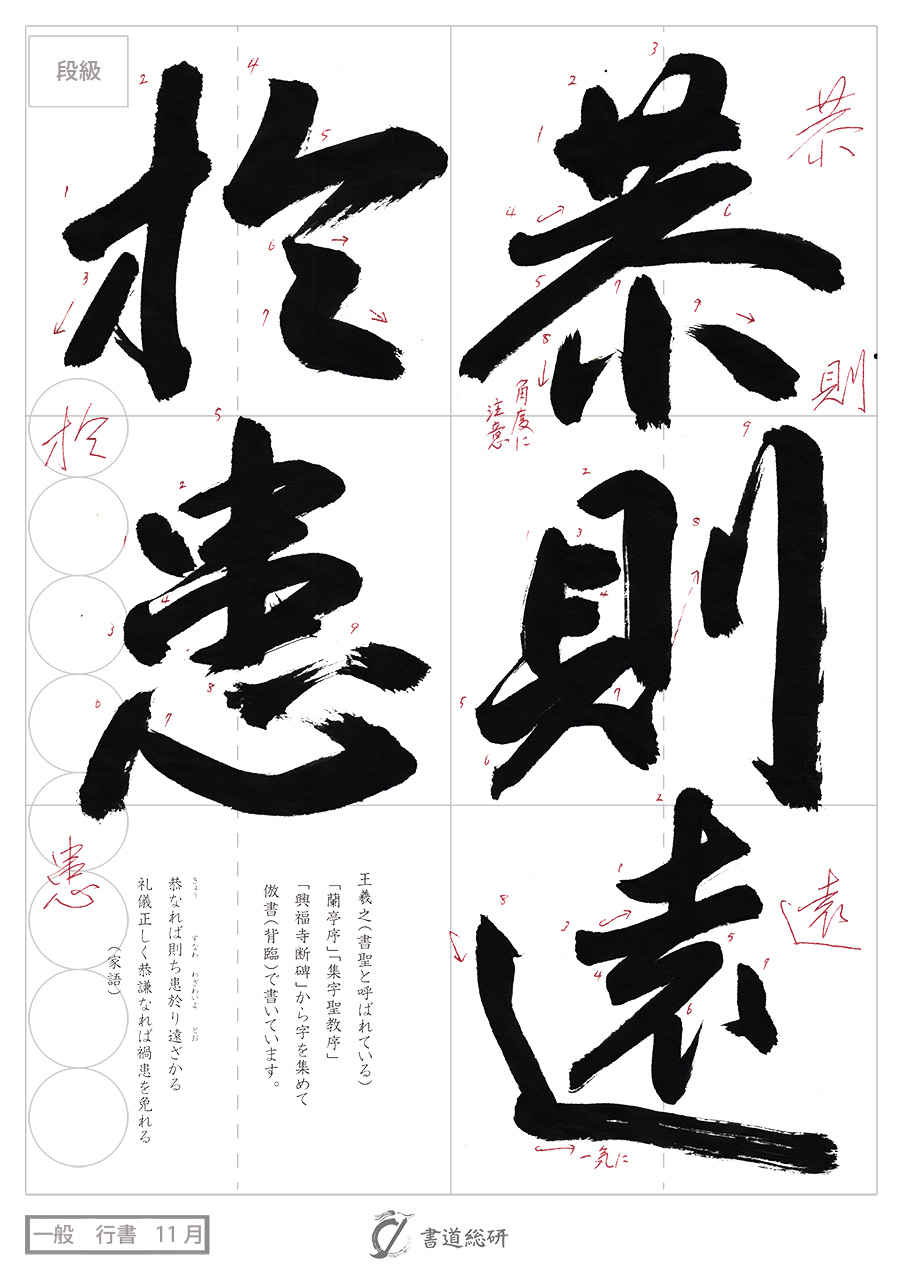 恭則遠
於患
段級
恭
則
遠
於
患
角度に
注意
一気に
王羲之(書聖と呼ばれている)
「蘭亭序」「集字聖教序」
「興福寺断碑」から字を集めて
倣書(背臨)で書いています。
きょう すなわ わざわいよ とお
恭なれば則ち患於り遠ざかる
礼儀正しく恭謙なれば禍患を免れる
(家語)
一般 行書 11月
書道総研